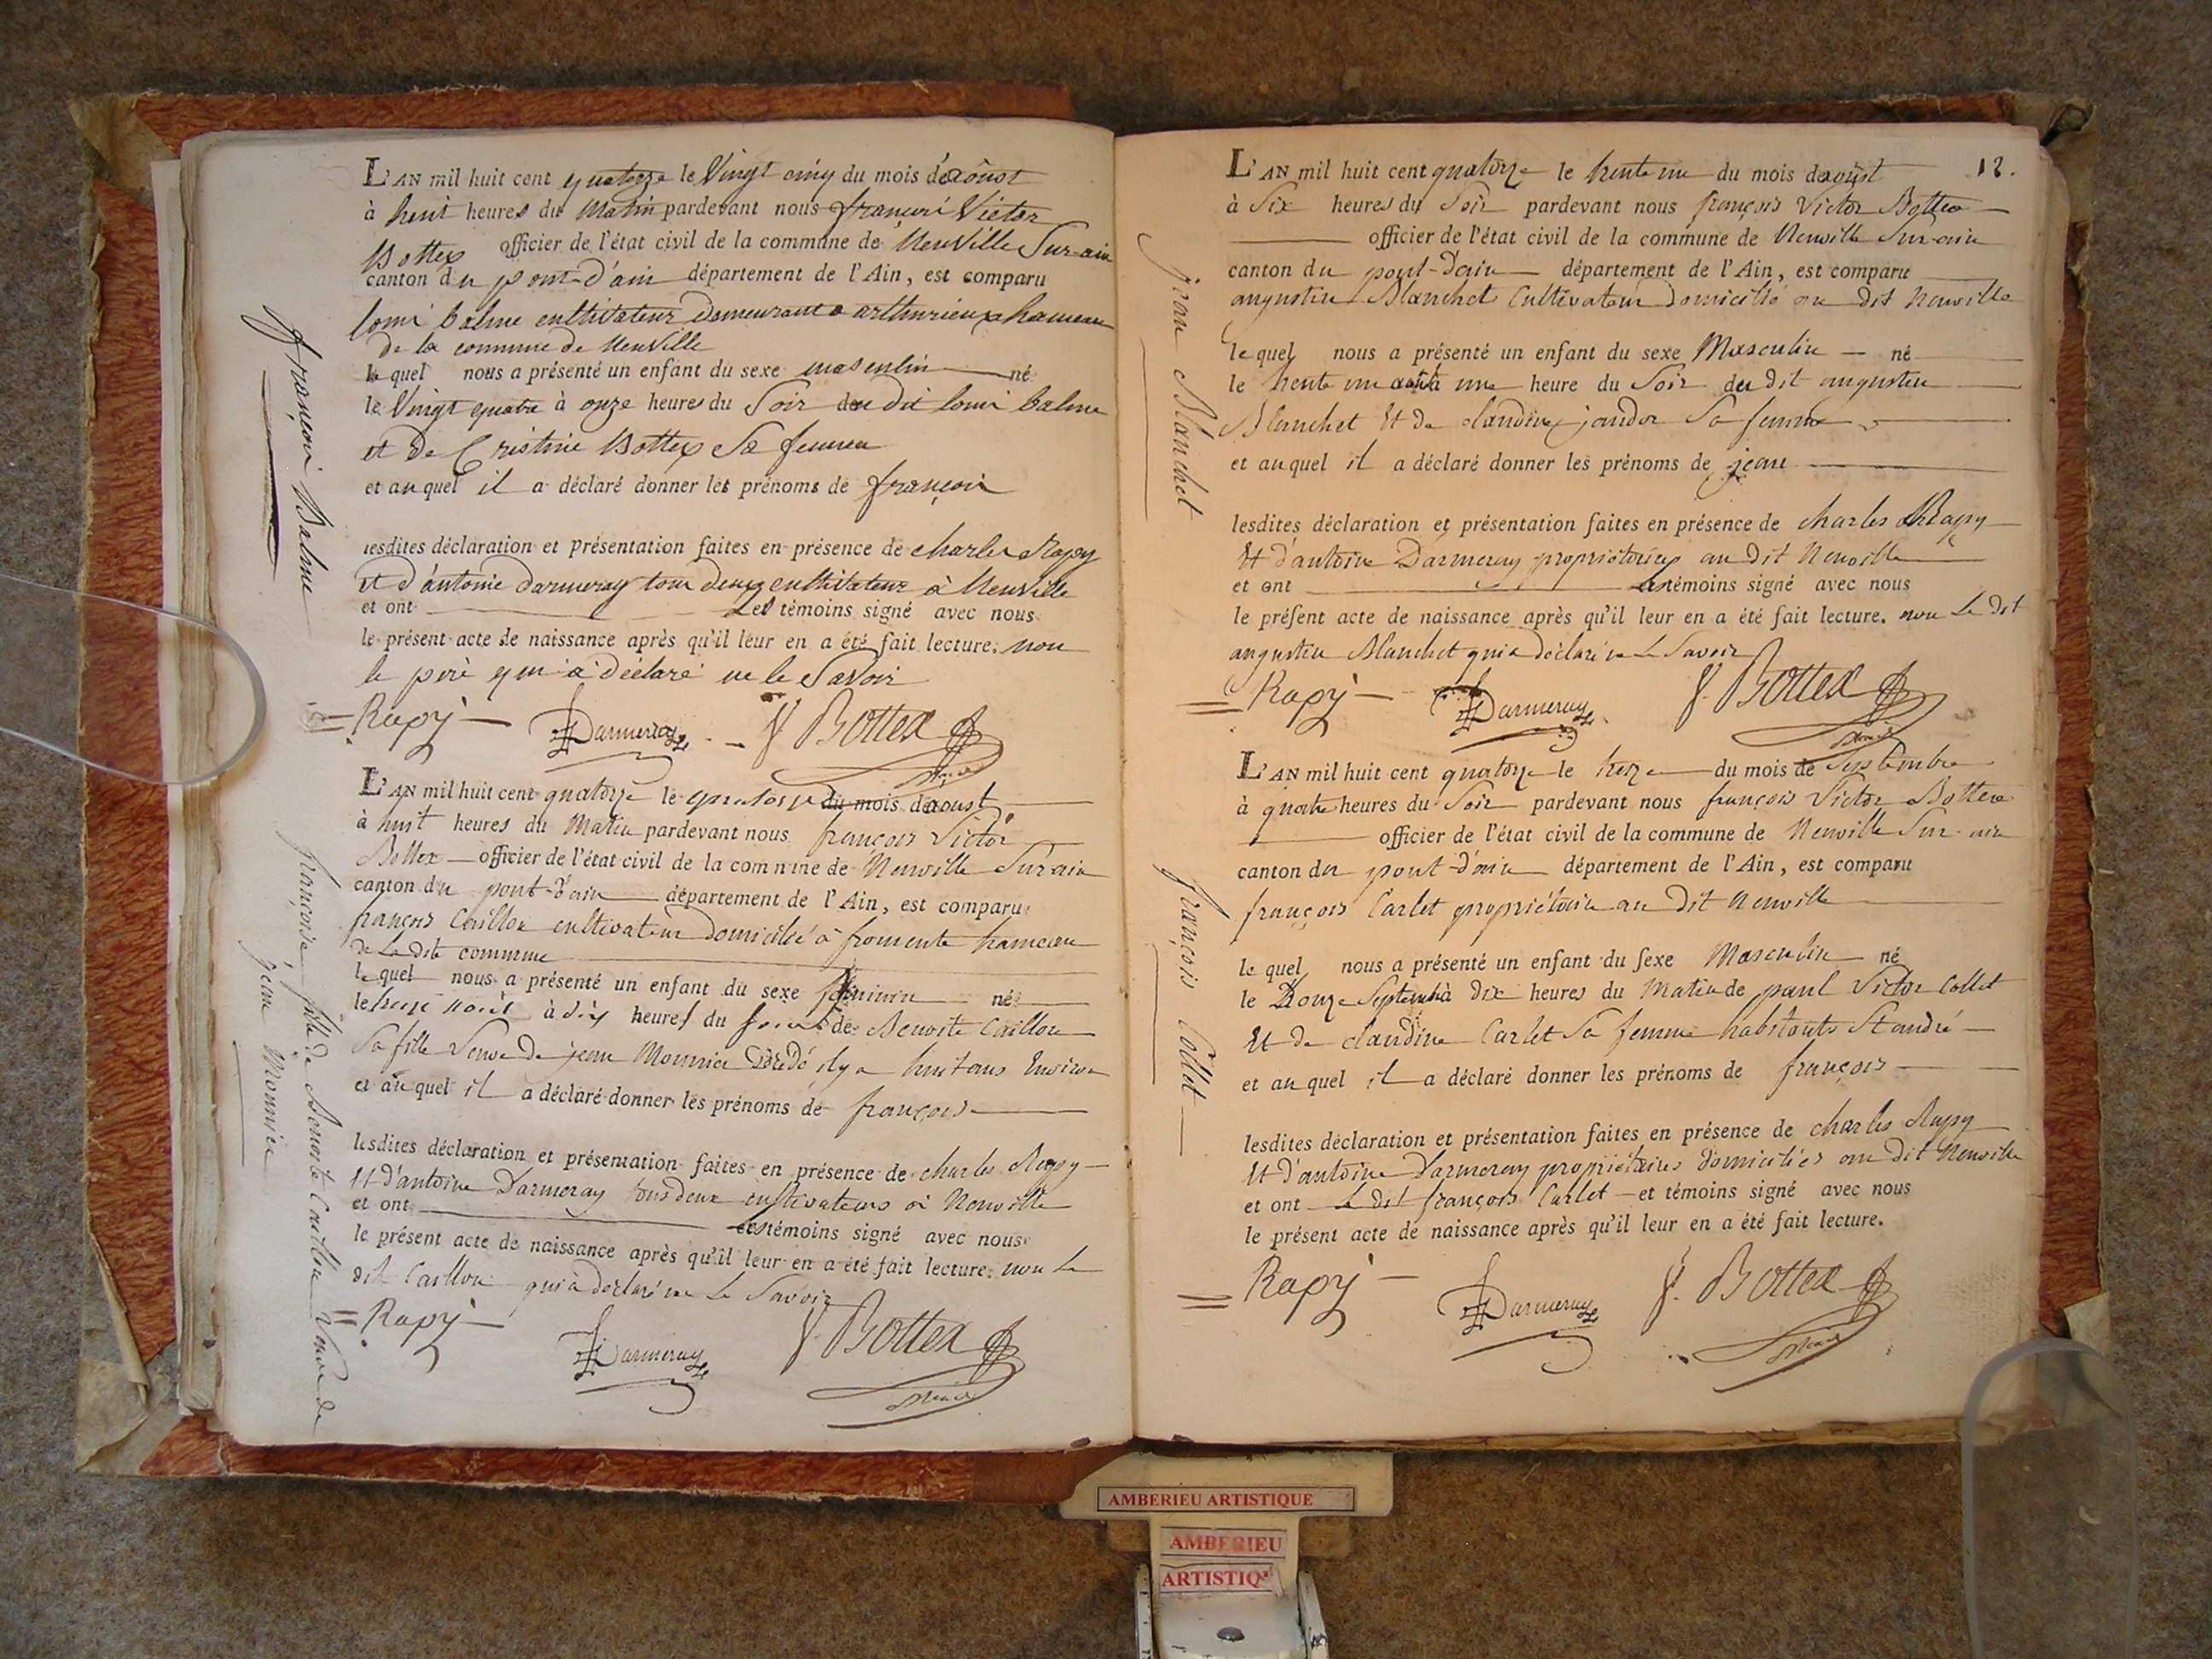 L'AN mil huit cent quatorze le Vingt cinq du mois d'aoûst
à huit heures du Matin pardevant nous françoi Victor
Bottex officier de l'état civil de la commune de Neuville Sur-ain
canton du pont-d'ain département de l'Ain, est comparu
loui balme cultivateur demeurant a arthurieux hameau
de la commune de Neuville
le quel nous a présenté un enfant du sexe masculin né
le Vingt quatre à onze heures du Soir du dit loui balme
et de Cristine Bottex Sa femme
et au quel il a déclaré donner les prénoms de françoi
lesdites déclaration et présentation faites en présence de charles Rapy
et d'antoine darmeray tou deux cultivateur à Neuville
et ont Les témoins signé avec nous
le présent acte de naissance après qu'il leur en a été fait lecture. non
le père qui a déclaré ne le Savoir
Rapy Darmeray f. Bottex
françoi Balme
L'AN mil huit cent quatorze le quatorze du mois d'aoust
à huit heures du Matin pardevant nous françois Victor
Bottex officier de l'état civil de la commune de Neuville Sur ain
canton du pont-d'ain département de l'Ain, est comparu
françois Caillon cultivateur domicilié à fromente hameau
de La dite commune
le quel nous a présenté un enfant du sexe féminin né
le treize août à dix heures du Soir de Benoite Caillon
Sa fille Veuve de jean Monnier Décédé il y a huit ans Environ
et au quel il a déclaré donner les prénoms de françoise
lesdites déclaration et présentation faites en présence de charles Rapy
Et d'antoine Darmeray tous deux cultivateurs à Neuville
et ont les témoins signé avec nous
le présent acte de naissance après qu'il leur en a été fait lecture. non Le
dit Caillon qui a déclaré ne Le Savoir
Rapy Darmeray f. Bottex
françoise fille de Benoite Caillon Veuve de
jean Monnier
12.
L'AN mil huit cent quatorze le trente un du mois d'aoûst
à Six heures du Soir pardevant nous françois Victor Bottex
officier de l'état civil de la commune de Neuville Sur-ain
canton du pont-d'ain département de l'Ain, est comparu
augustin Blanchet Cultivateur domicilié au dit Neuville
le quel nous a présenté un enfant du sexe Masculin né
le trente un août à une heure du Soir du dit augustin
Blanchet Et de claudine jandor Sa femme
et au quel il a déclaré donner les prénoms de jean
lesdites déclaration et présentation faites en présence de charles Rapy
Et d'antoine Darmeray propriétaires au dit Neuville
et ont les témoins signé avec nous
le présent acte de naissance après qu'il leur en a été fait lecture. non Le dit
augustin Blanchet qui a déclaré ne Le Savoir
Rapy Darmeray f. Bottex
jean Blanchet
L'AN mil huit cent quatorze le treize du mois de Septembre
à quatre heures du Soir pardevant nous françois Victor Bottex
officier de l'état civil de la commune de Neuville Sur-ain
canton du pont-d'ain département de l'Ain, est comparu
françois Carlet propriétaire au dit Neuville
le quel nous a présenté un enfant du sexe Masculin né
le Douze Septembre à dix heures du Matin de paul Victor Collet
Et de claudine Carlet Sa femme habitants St andré
et au quel il a déclaré donner les prénoms de françois
lesdites déclaration et présentation faites en présence de charles Rapy
Et d'antoine Darmeray propriétaires domiciliés au dit Neuville
et ont Le dit françois Carlet et témoins signé avec nous
le présent acte de naissance après qu'il leur en a été fait lecture.
Rapy Darmeray f. Bottex
françois Collet
AMBERIEU ARTISTIQUE
AMBERIEU
ARTISTIQ